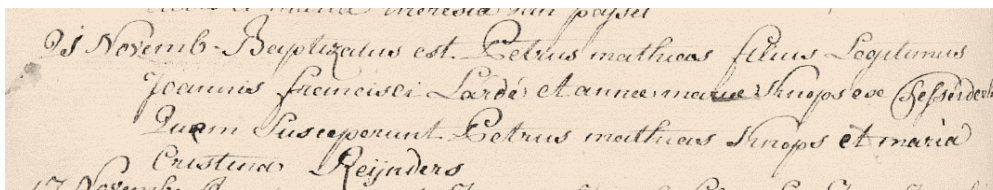 et maria theresia van
21 Novemb. Baptizatus est Petrus mathias filius Legitimus
Joannis francisci Lardé et annæ mariæ Knops ex
Quem Susceperunt Petrus mathias Knops et maria
Cristina Reijnders
17 Novemb.